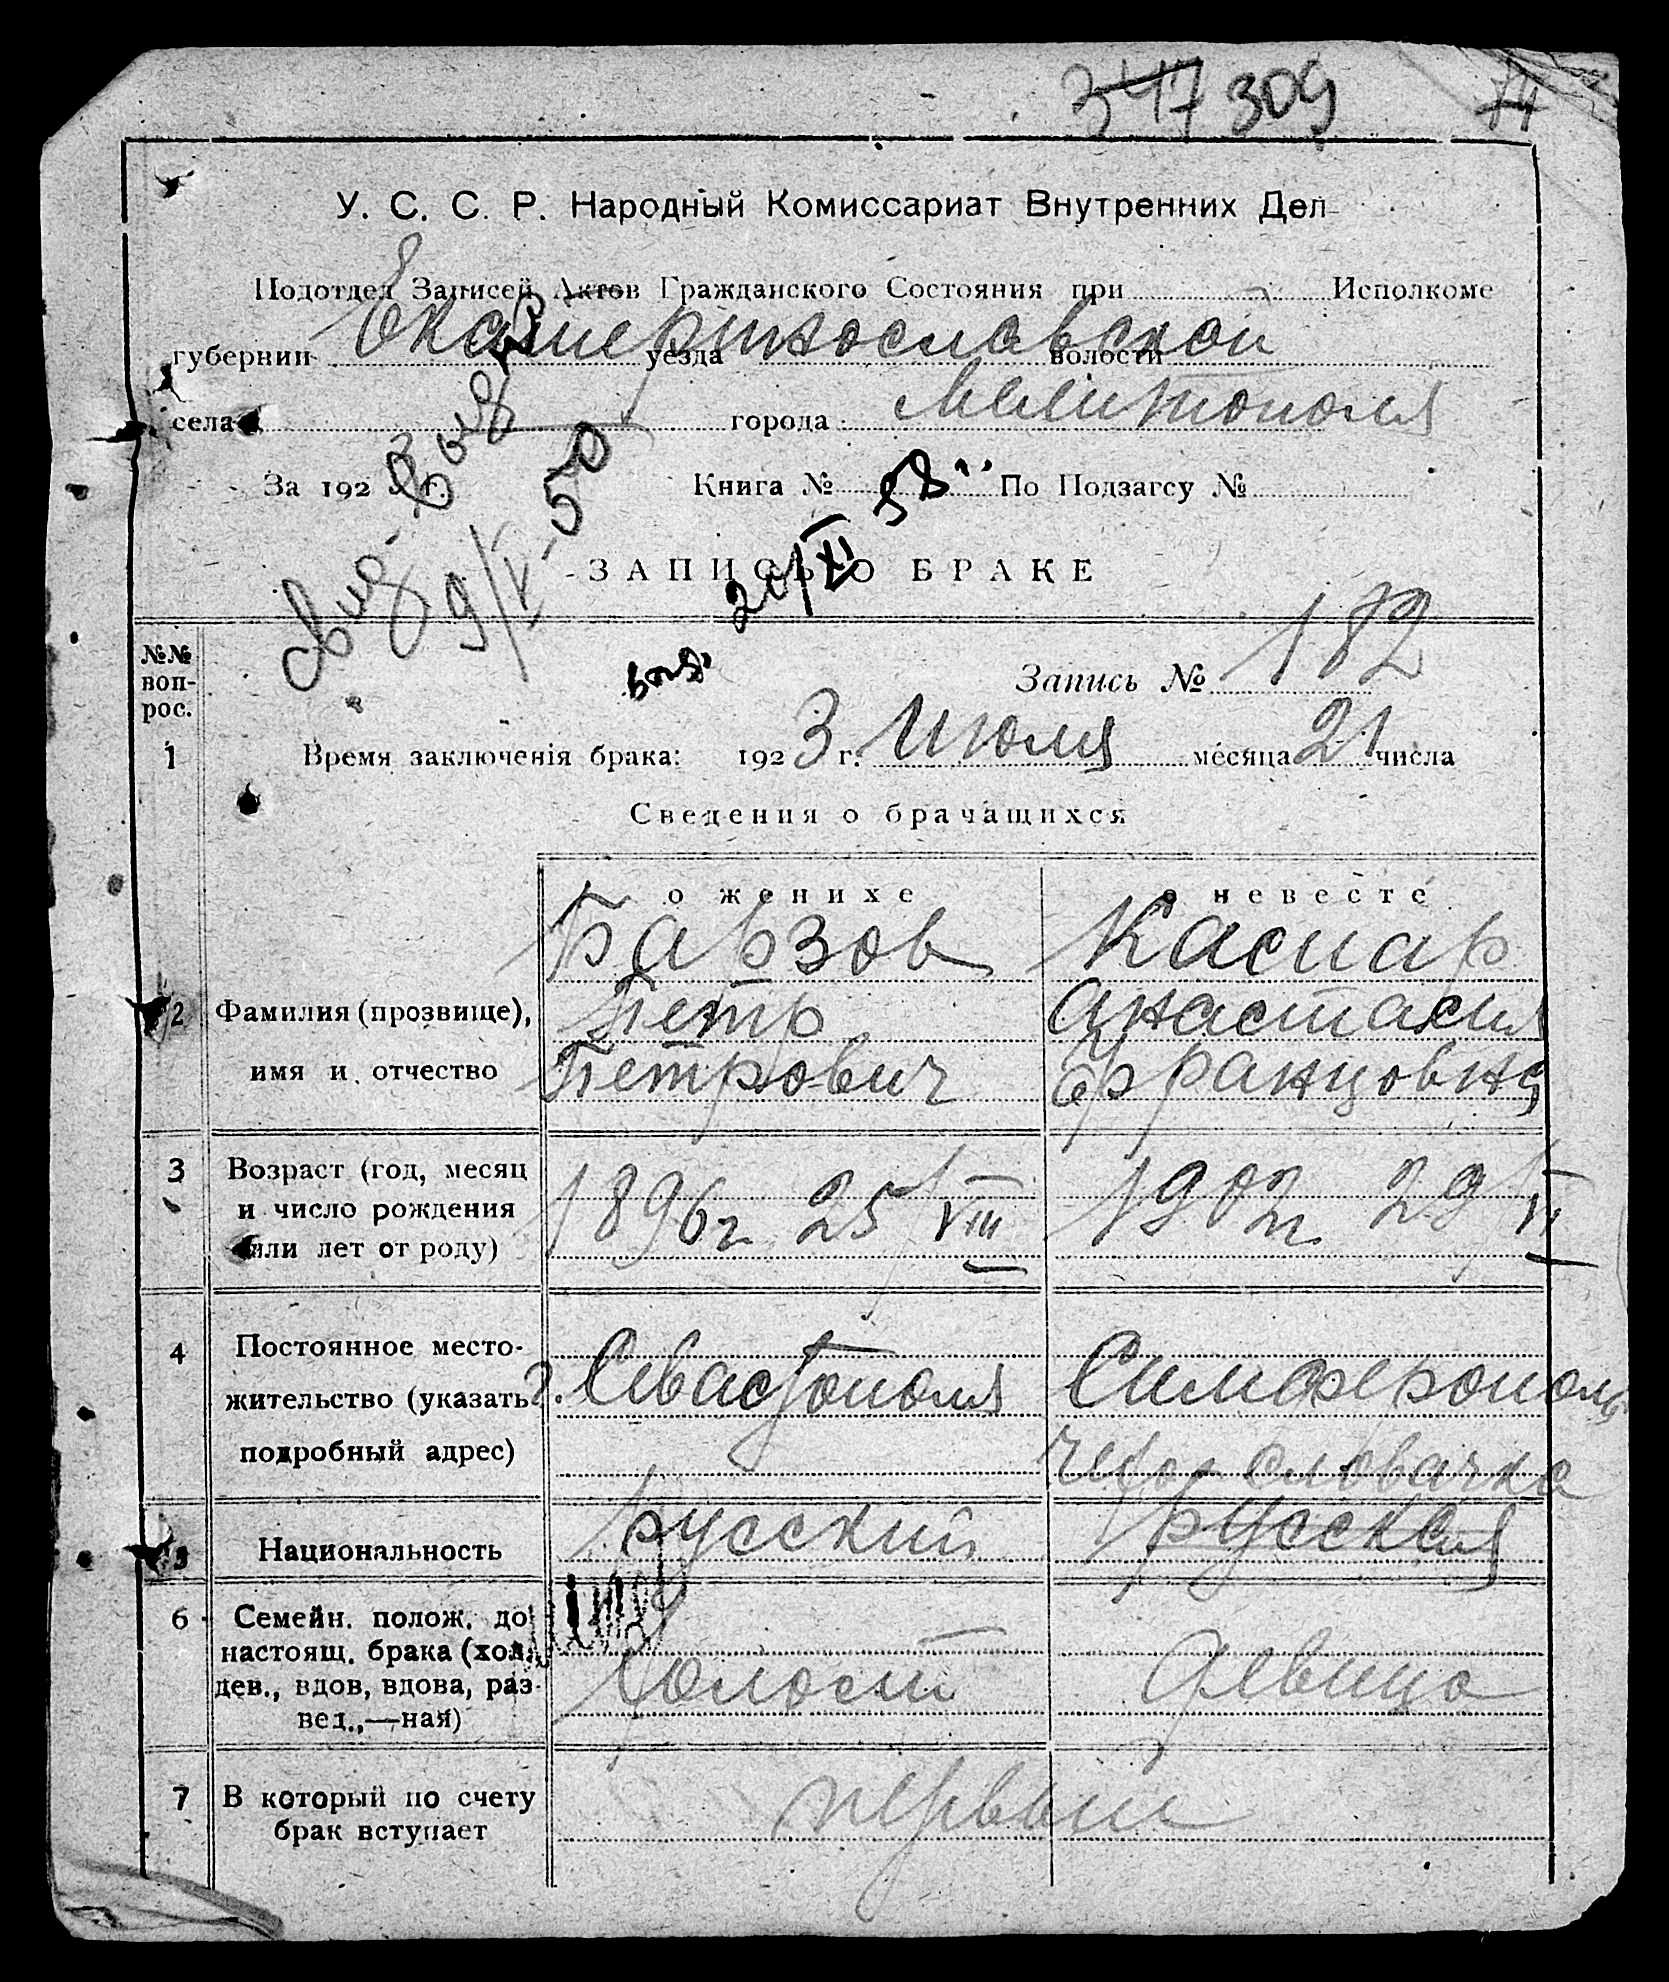 347 309 74
У. С. С. Р. Народный Комиссариат Внутренних Дел
Подотдел Записей Актов Гражданского Состояния при Исполкоме
губернии Екатеринославской уезда волости
села города Мелитополя
За 1923 г. Книга № По Подзагсу №
выд. 58
свид. 9/V 50
20/XI
ЗАПИСЬ О БРАКЕ
№№ воп-рос.
Запись № 182
выд.
1 Время заключенія брака: 1923 г. Июля месяца 21 числа
Сведения о брачащихся
о женихе о невесте
Барзов Каспар
2 Фамилия (прозвище), Петр Анастасия
имя и отчество Петрович Францовна
3 Возраст (год, месяц
и число рождения 1896 г 25/VIII 1902 г. 29/VI
или лет от роду)
4 Постоянное место-
жительство (указать г. Севастополя Симферополь
подробный адрес)
Чехословачка
5 Национальность русский русская
6 Семейн. полож. до
настоящ. брака (хол.,
дев., вдов, вдова, раз- холост девица
вед.,—ная)
7 В который по счету первый
брак вступает